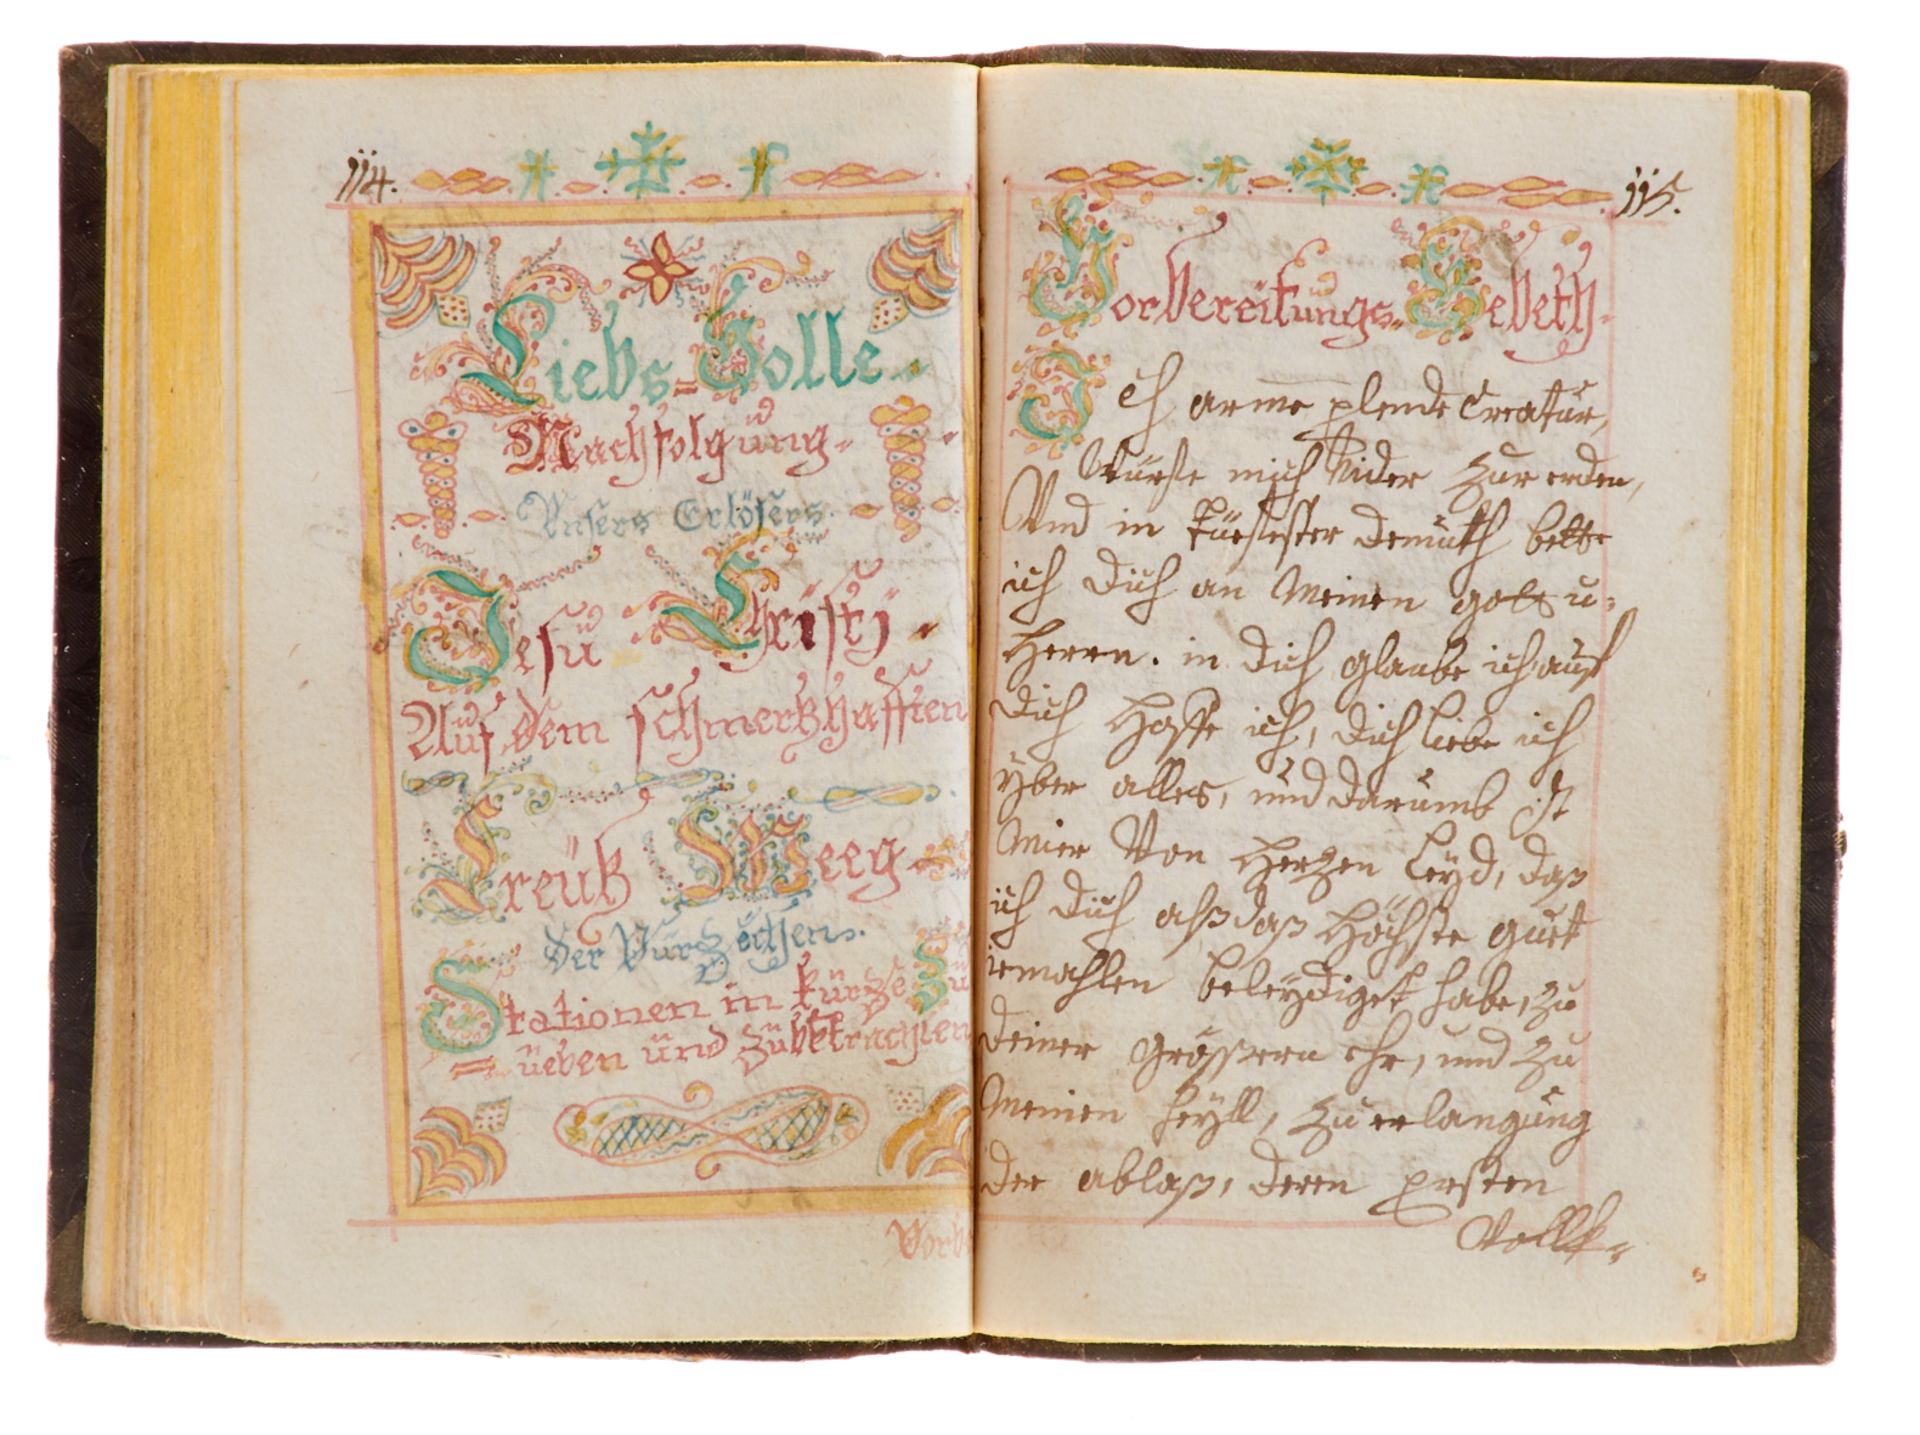 114.
Liebs=Volle
Nachfolgüng
Unsers Erlösers
Jesü Christi
Aüf dem schmertzhafften
Creütz Weeg
der Viirzöchen
Stationen in kürtze Zü
=üeben ünd zübetrachten
Vorb
115.
Vorbereitüngs=Gebeth.
Ich arme elende Creatür,
Würffe mich Nider zur erden,
Und in tüeffester demüth bette
ich dich an Meinen gott u:
Herrn. in dich glaube ich auf
dich Hoffe ich, dich liebe ich
yber alles, ünd darümb ist
Mier Von Herzen leyd, daß
ich dich alß daß Höchste guet
iemahlen beleydiget habe, zu
deiner grössern ehr, und zu
Meinen heyll, zu erlangüng
der ablaß, deren ersten
Vollk=